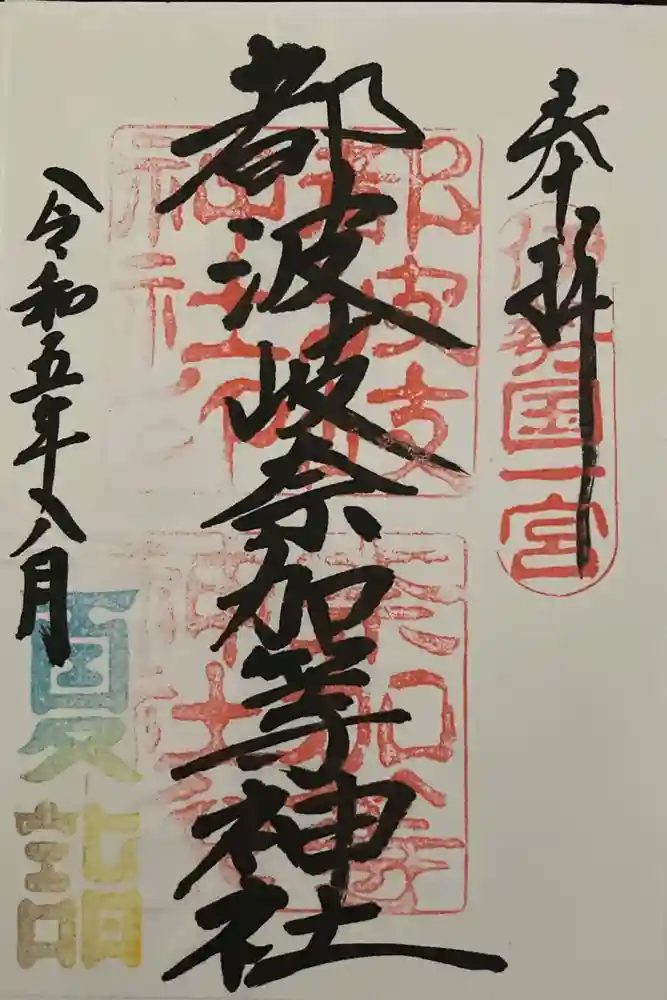 奉拝
伊勢国一宮
都波岐奈加等神社
都波岐神社
奈加等神社
令和五年八月
夏詣